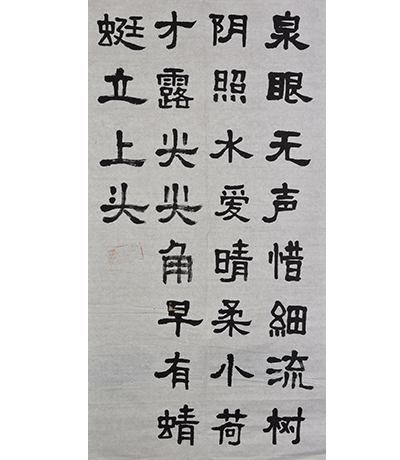 泉眼无声惜细流树
阴照水爱晴柔小荷
才露尖尖角早有蜻
蜓立上头